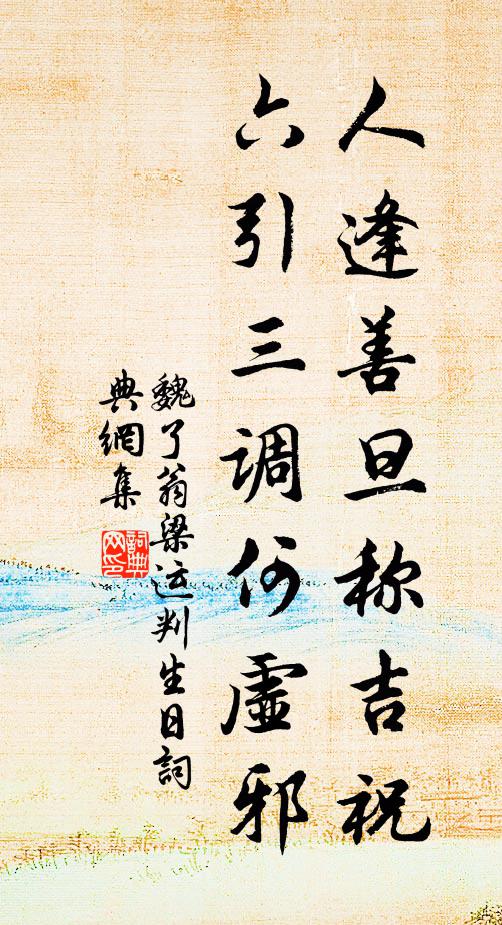 人逢善旦称吉祝
六引三调何虚邪
魏了翁梁运判生日詞
典網集
詞典
网印